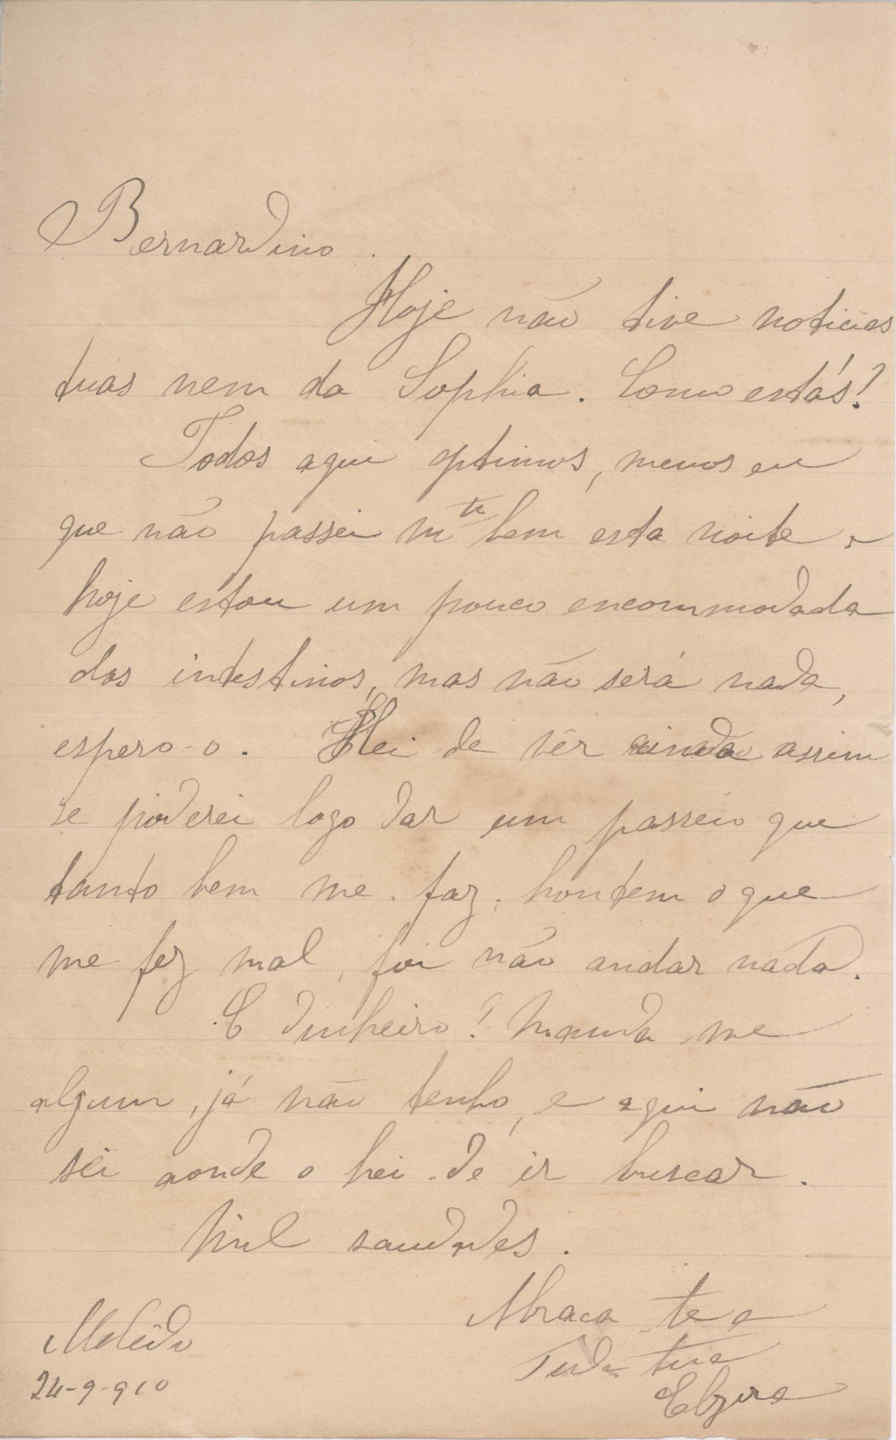 Bernardino.
Hoje não tive noticias
tuas nem da Sophia. Como estás?
Todos aqui optimos, menos eu
que não passei mto bem esta noite e
hoje estou um pouco encommodada
dos intestinos, mas não será nada,
espero-o. Hei de vêr ainda assim
se poderei logo dar um passeio que
tanto bem me faz, hontem o que
me fez mal, foi não andar nada.
E dinheiro? Manda me
algum, já não tenho, e aqui não
sei aonde o hei-de ir buscar.
Mil saudades.
Abraça-te a
Toda tua
Elzira
Moledo
24-9-910